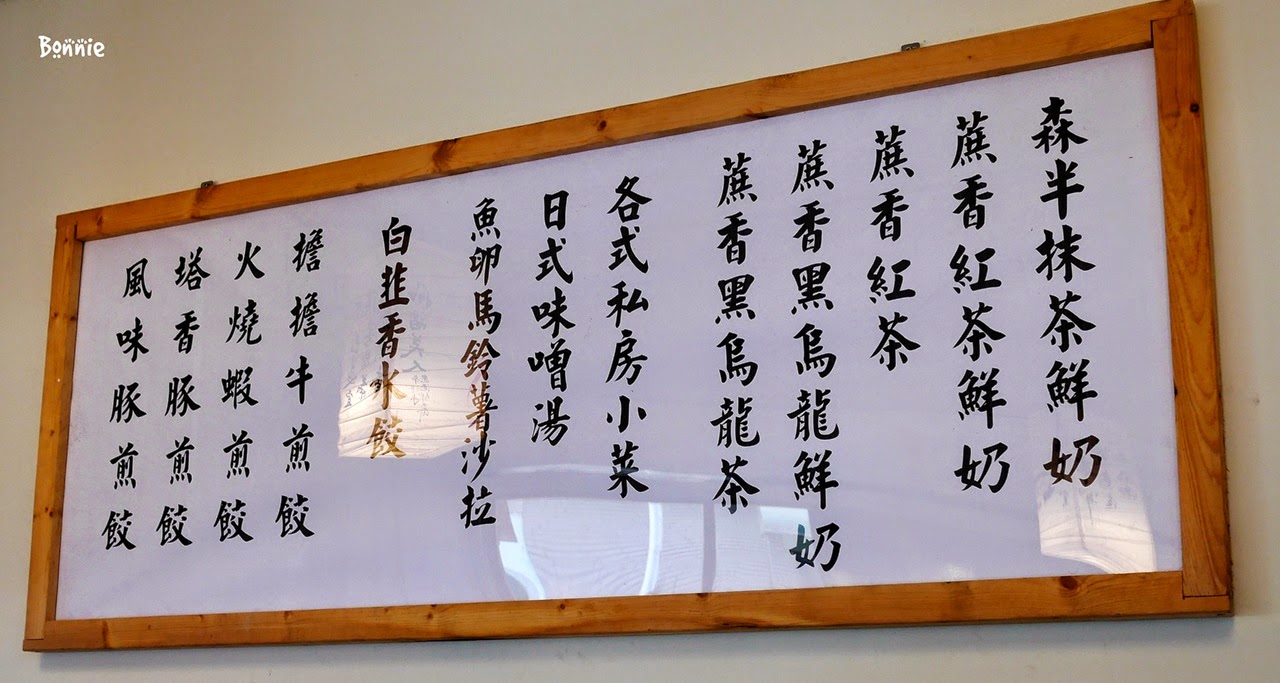 Bonnie
森半抹茶鮮奶
蔗香紅茶鮮奶
蔗香紅茶
蔗香黑烏龍鮮奶
蔗香黑烏龍茶
各式私房小菜
日式味噌湯
魚卵馬鈴薯沙拉
白韭香水餃
擔擔牛煎餃
火燒蝦煎餃
塔香豚煎餃
風味豚煎餃